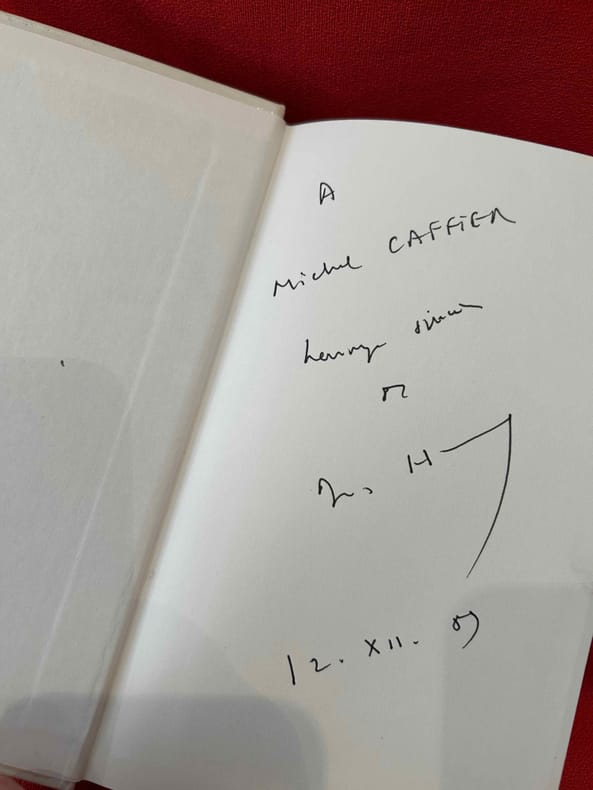 A
Michel CAFFIER
hommage sincère
de
H
12. XII. 09